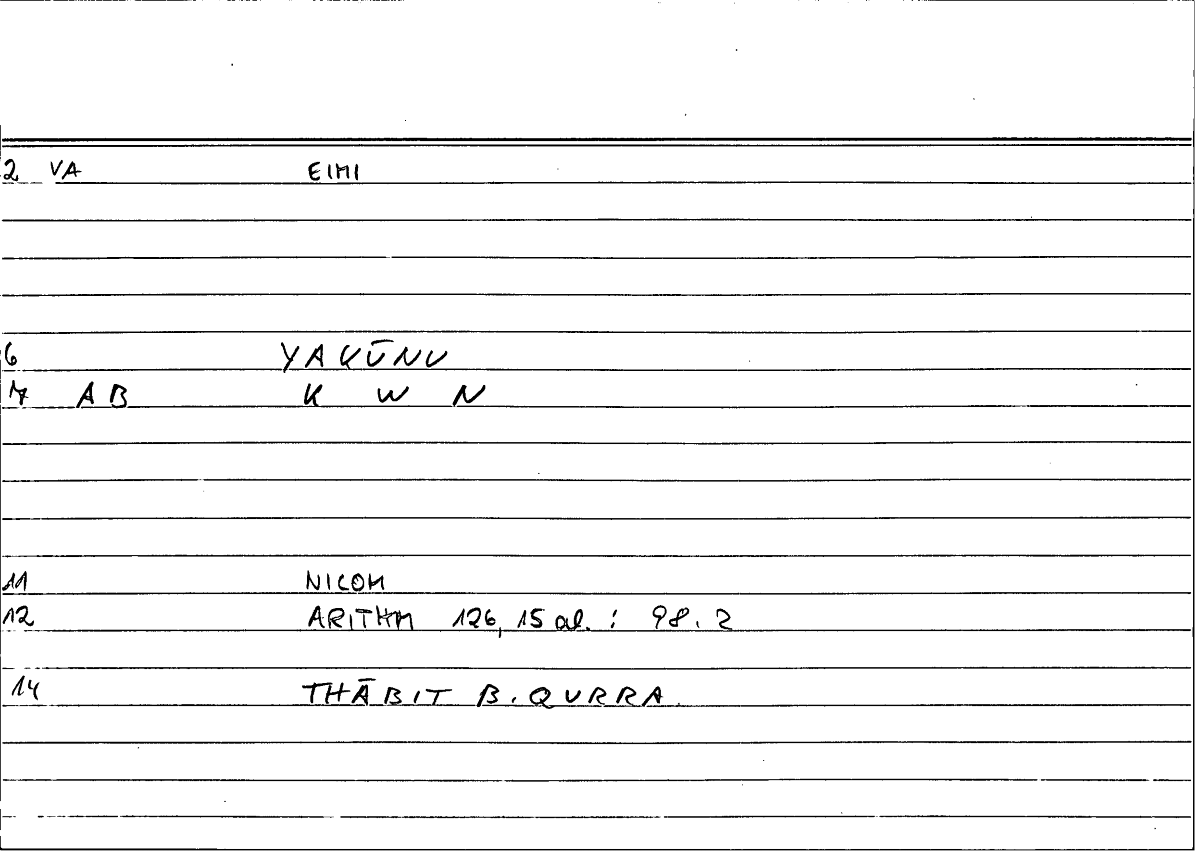 2 VA EIMI
6 YAKŪNU
7 AB K W N
11 NICOM
12 ARITHM 126,15 al. : 98.2
14 THĀBIT B. QURRA